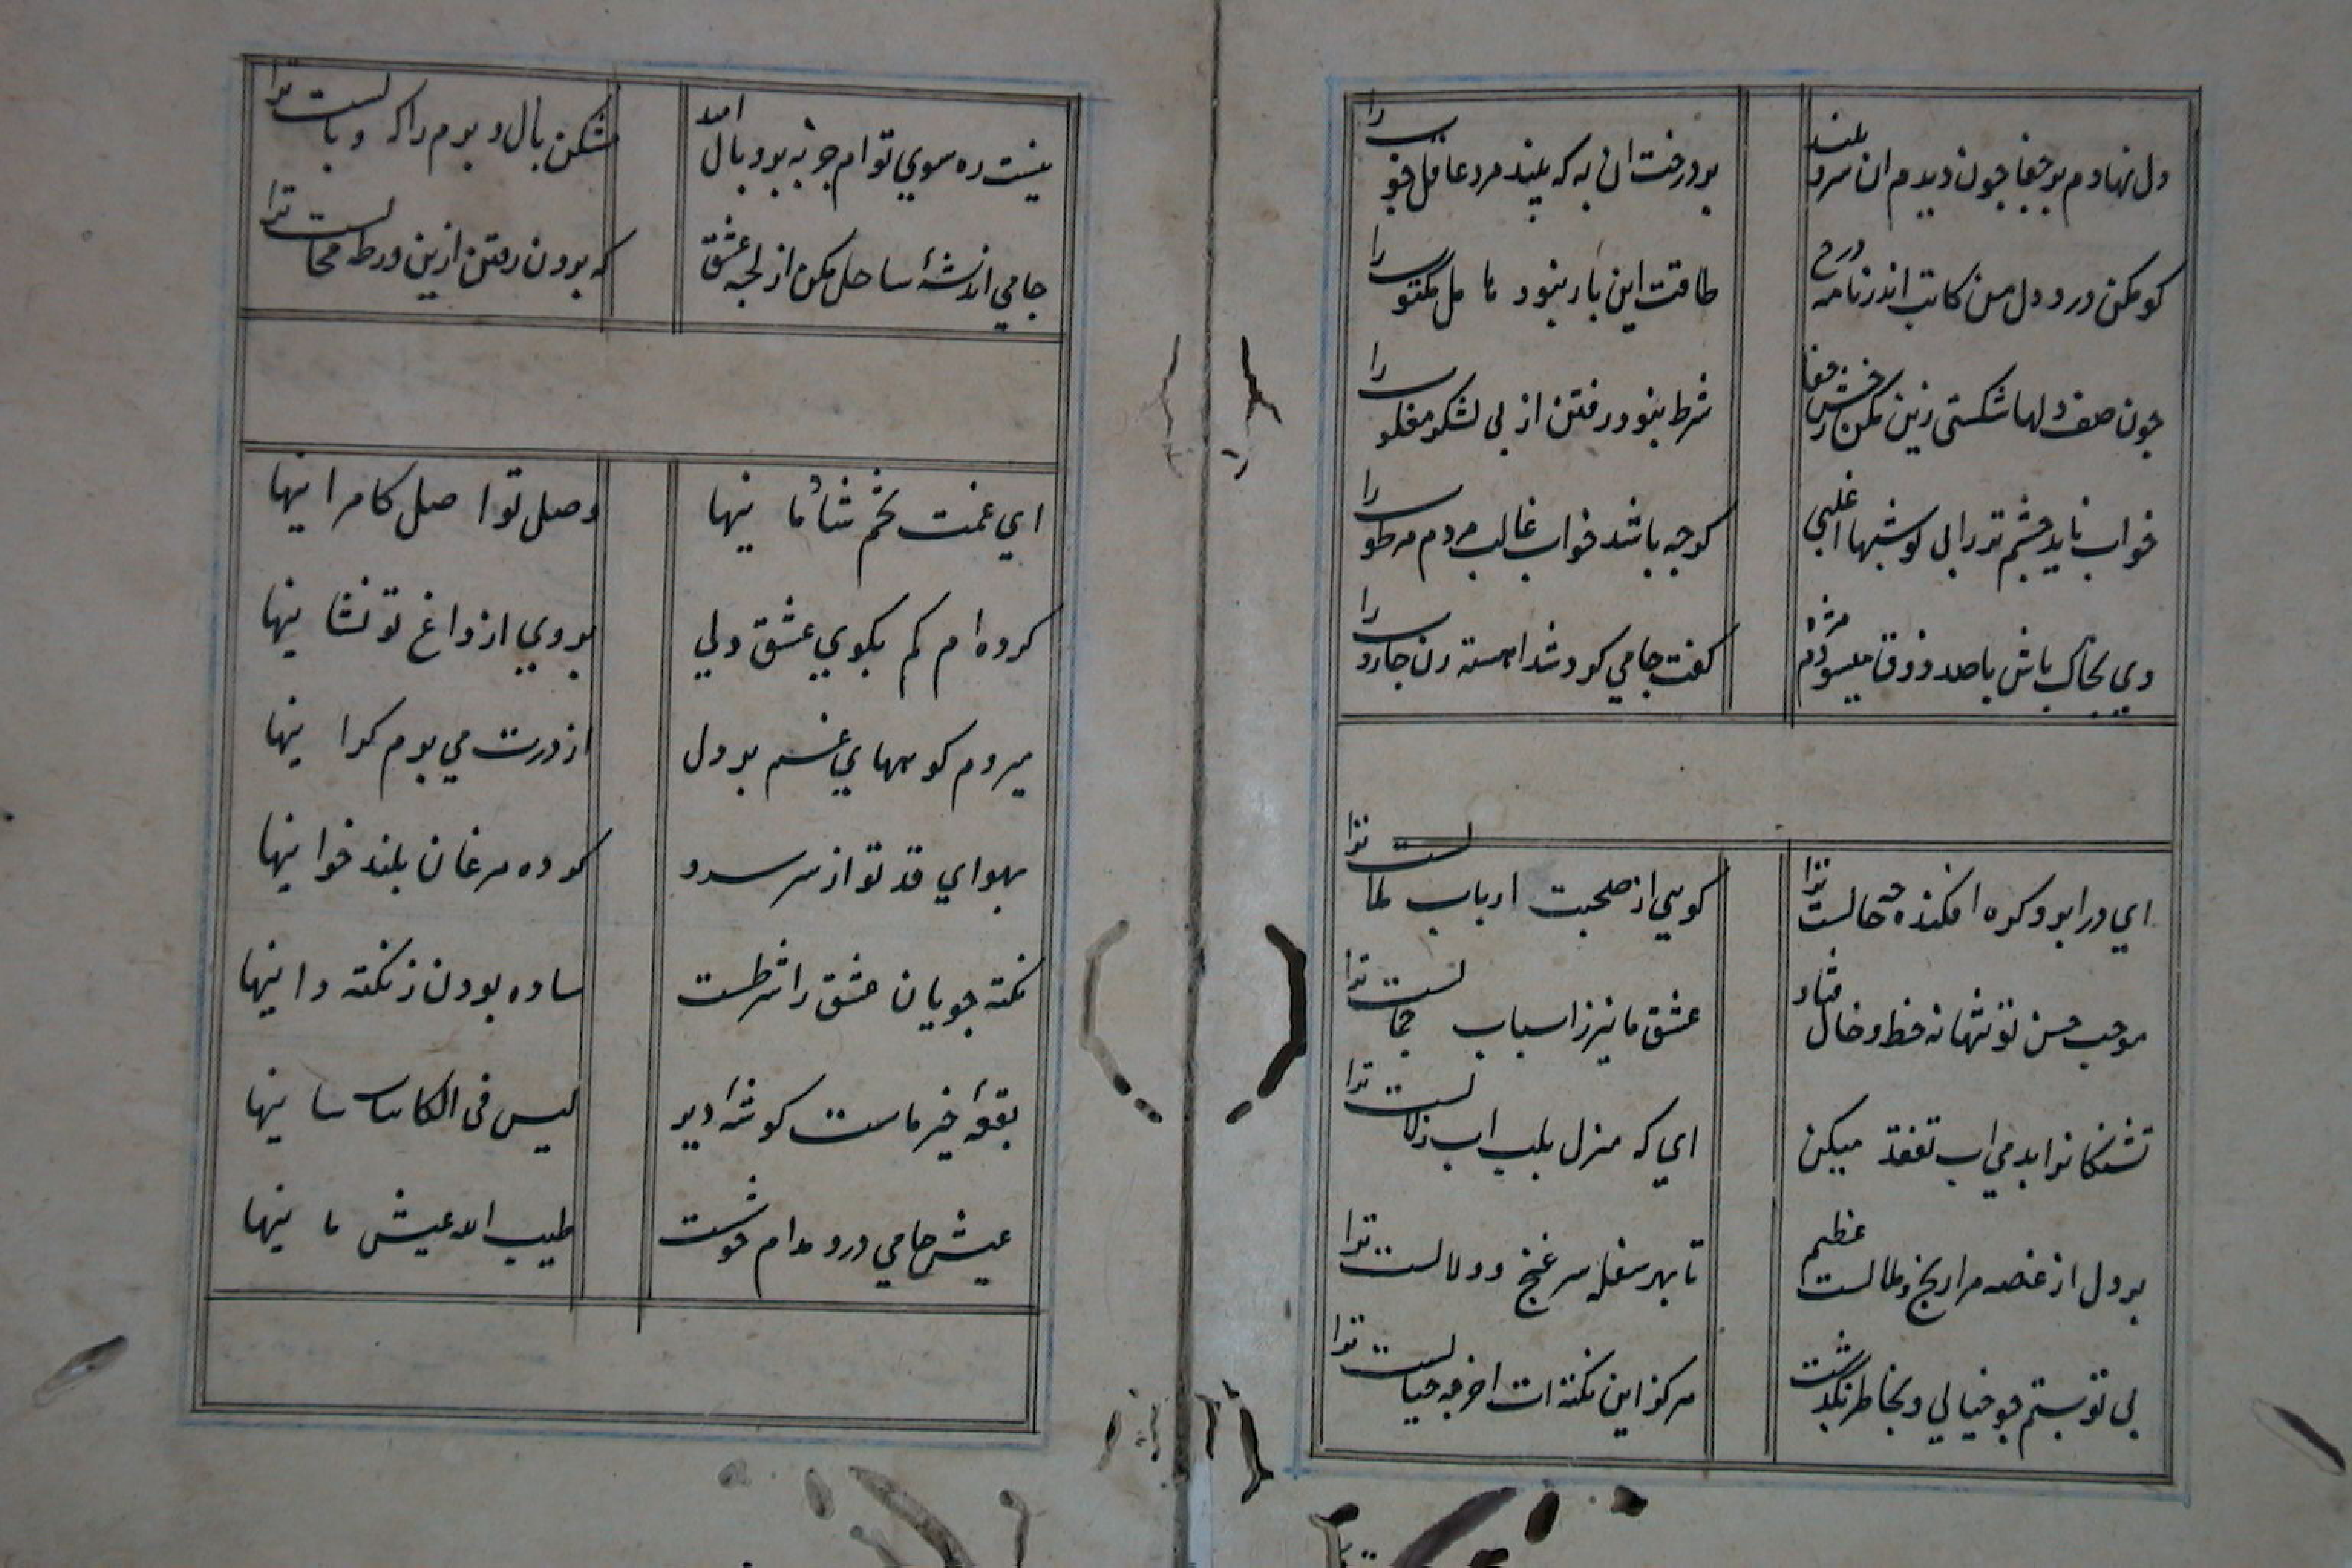 دل نهادم بر جفا چون دیدم ان سرو بلند
بر درخت ان به که بیند مرد عاقل خوب را
کو مکن درد دل من کاتب اندر نامه درج
طاقت این بار نبود حامل مکتوب را
چون صف دلها شکستی زین مکن رخش جفا
شرط نبود رفتن از پی لشکر مغلوب را
خواب ناید چشم تر را بی تو شبها اغلبی
گرچه باشد خواب غالب مردم مرطوب را
دی بخاک پاش با صد ذوق میسودم مژه
گفت جامی کرد شد اهسته زن جاروب را
ای در ابرو گره افکنده چه حالست ترا
گویی از صحبت ارباب ملالست ترا
موجب حسن تو تنها نه خط و خال فتاد
عشق ما نیز ز اسباب جمالست ترا
تشنگانرا بدمی اب تفقد میکن
ای که منزل بلب اب زلالست ترا
بر دل از غصه مرا رنج و ملالست عظیم
تا بهر سفله سر غنج و دلالست ترا
بی تو بستم چو خیالی و بخاطر نگذشت
هرگز این نکته ات اخر چه خیالست ترا
نیست ره سوی توام جز به پر و بال امید
مشکن بال و پرم را که وبالست ترا
جامی اندیشهٔ ساحل مکن از لجه عشق
که برون رفتن ازین ورطه محالست ترا
ای غمت تخم شادمانیها
وصل تو اصل کامرانیها
کرده ام گم بکوی عشق دلی
بر وی از داغ تو نشانیها
میروم کوههای غم بر دل
از درت می برم گرانیها
بهوای قد تو از سر سرو
کرده مرغان بلند خوانیها
نکته جویان عشق را شرطست
ساده بودن ز نکته دانیها
بقعهٔ خیر ماست گوشهٔ دیر
لیس فی الکاینات ثانیها
عیش جامی درو مدام خوشست
طیب الله عیش بانیها